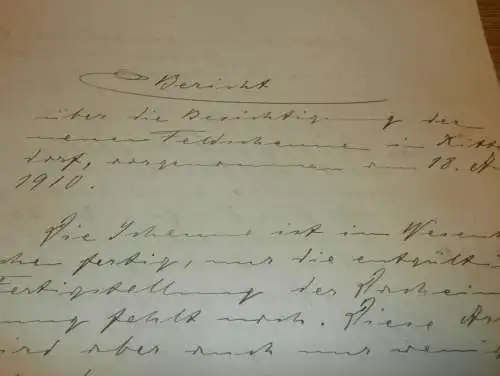 Bericht
über die Besichtigung der
neuen Feldscheune in Kitt
dorf, vorgenommen am 18. A
1910.
Die Scheune ist im Wesent
chen fertig, nur die entgülti
Fertigstellung der
ung fehlt noch. Diese Ar
ird aber auch nur weni